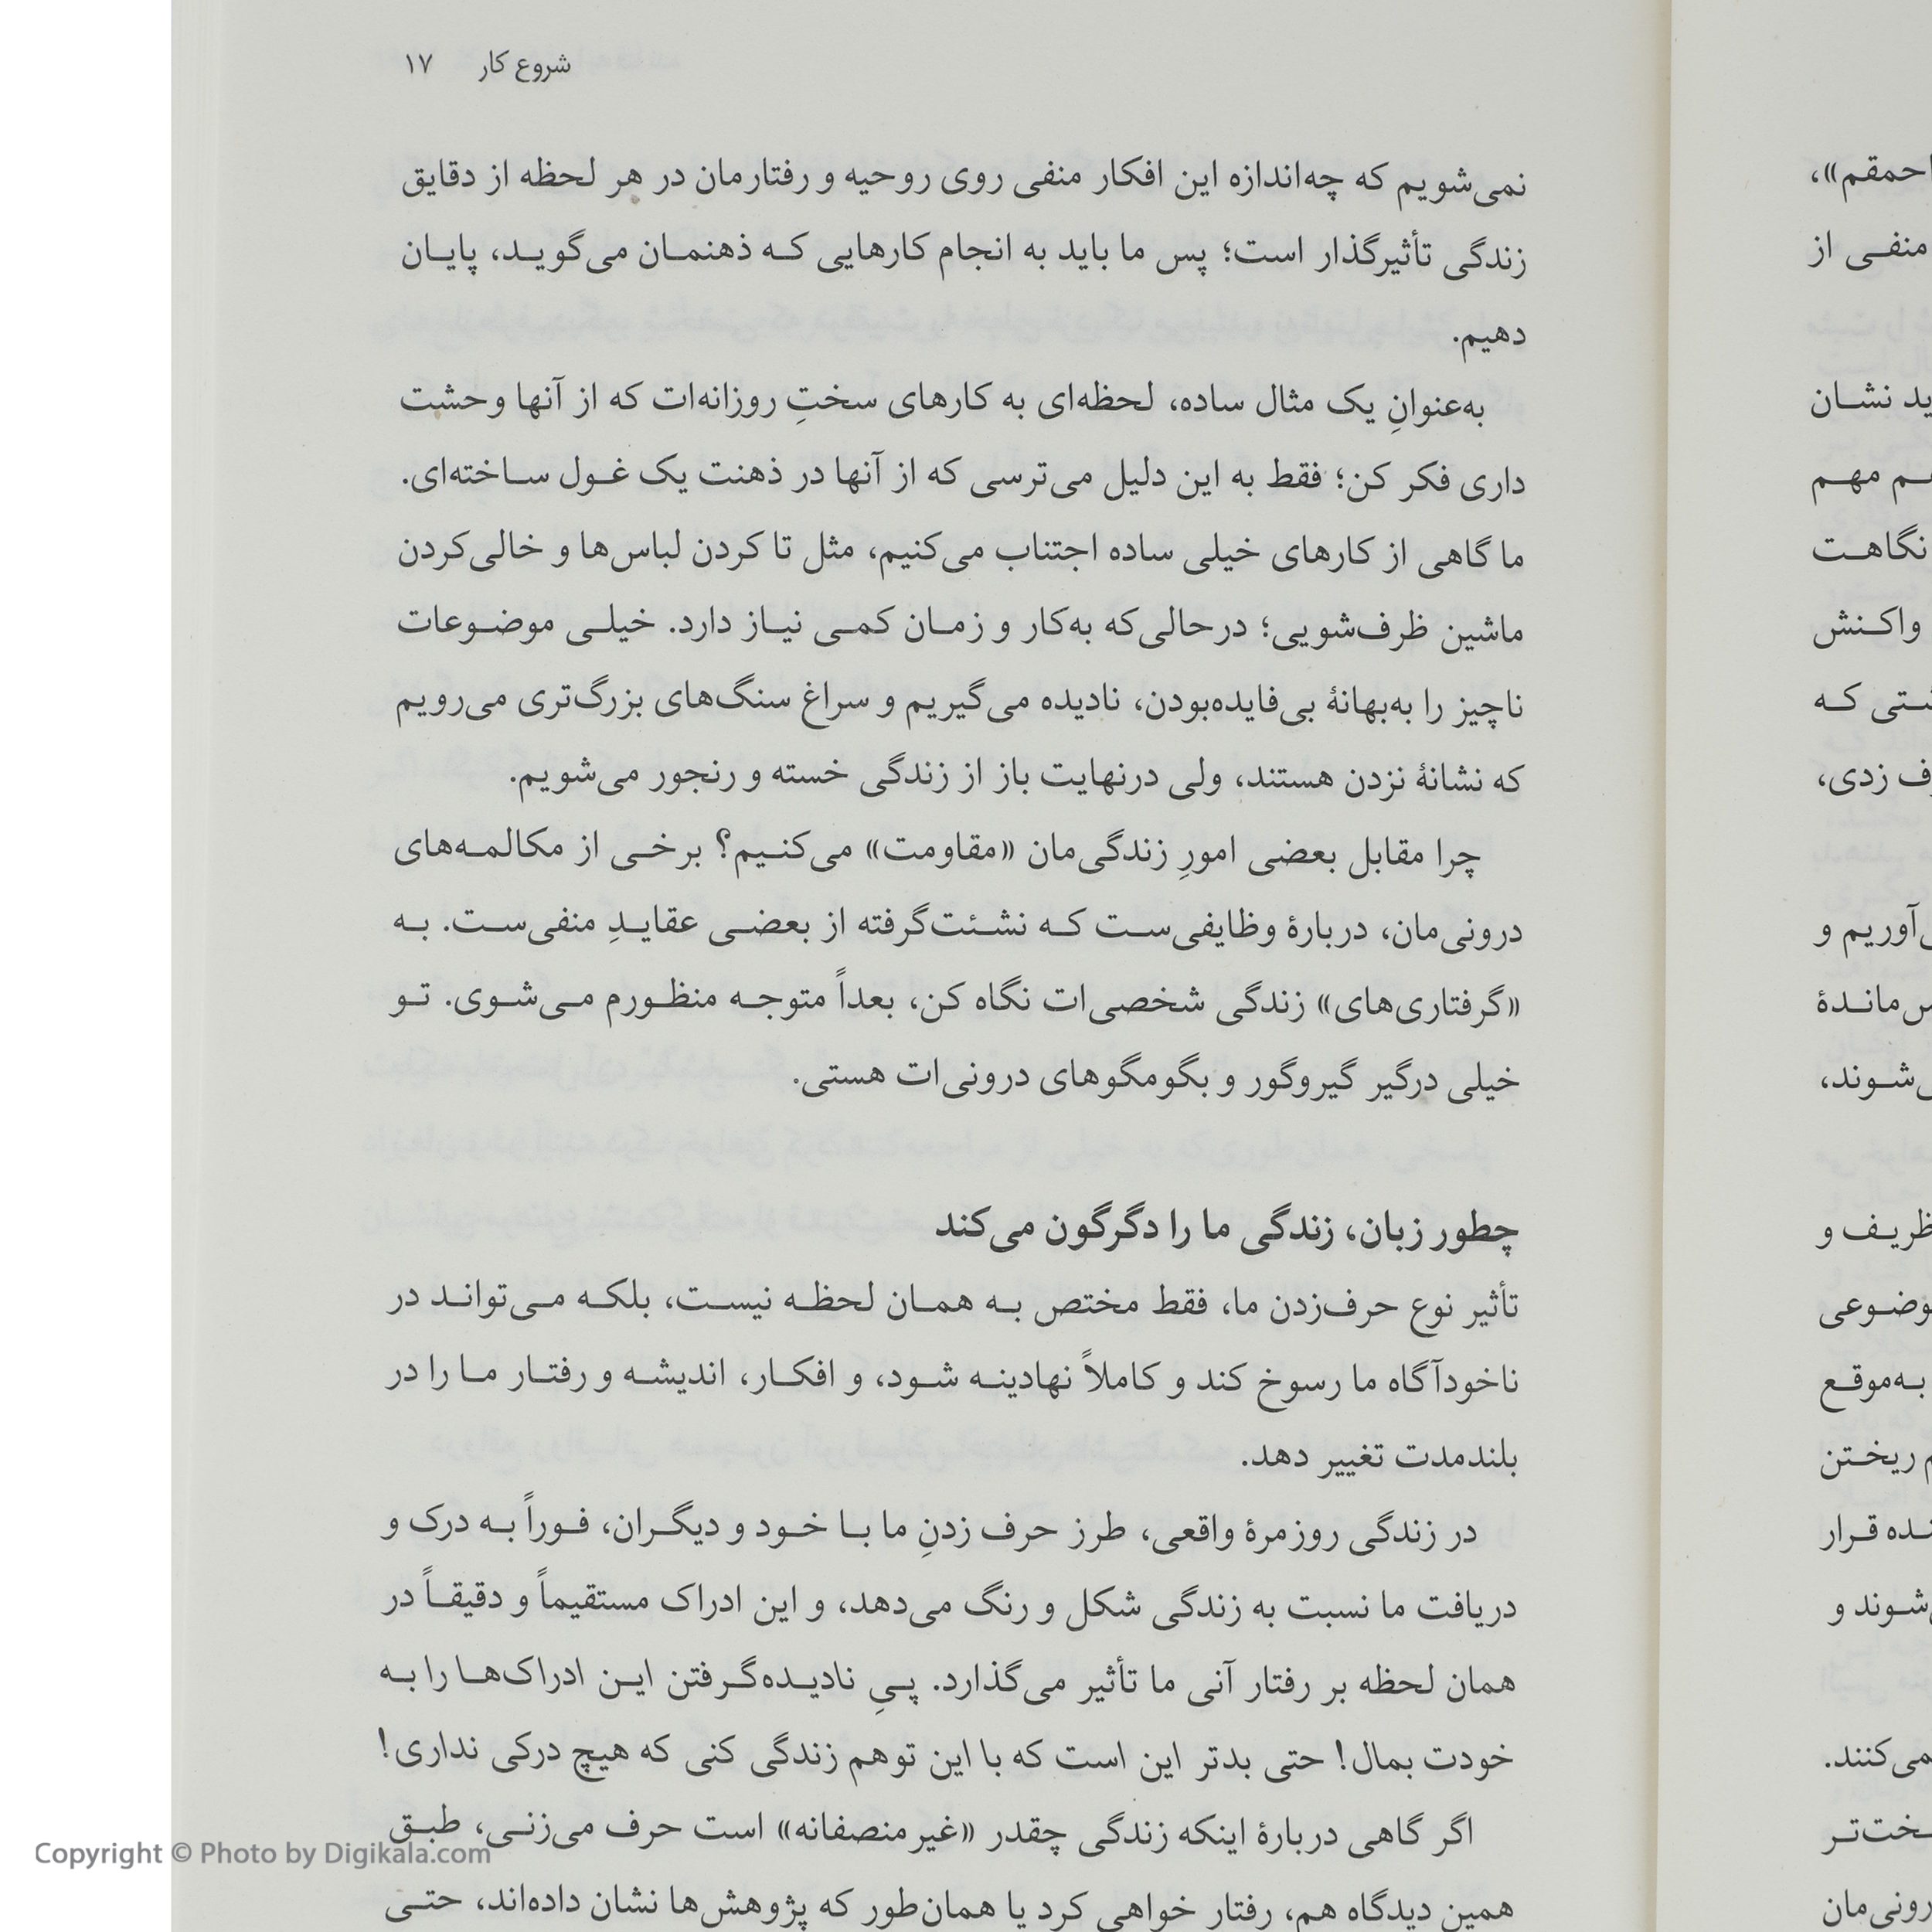 شروع کار ۱۷
نمی‌شویم که چه‌اندازه این افکار منفی روی روحیه و رفتارمان در هر لحظه از دقایق
زندگی تأثیرگذار است؛ پس ما باید به انجام کارهایی که ذهنمان می‌گوید، پایان
دهیم.
به‌عنوانِ یک مثال ساده، لحظه‌ای به کارهای سختِ روزانه‌ات که از آنها وحشت
داری فکر کن؛ فقط به این دلیل می‌ترسی که از آنها در ذهنت یک غول ساخته‌ای.
ما گاهی از کارهای خیلی ساده اجتناب می‌کنیم، مثل تا کردن لباس‌ها و خالی‌کردن
ماشین ظرف‌شویی؛ درحالی‌که به‌کار و زمان کمی نیاز دارد. خیلی موضوعات
ناچیز را به‌بهانهٔ بی‌فایده‌بودن، نادیده می‌گیریم و سراغ سنگ‌های بزرگ‌تری می‌رویم
که نشانهٔ نزدن هستند، ولی درنهایت باز از زندگی خسته و رنجور می‌شویم.
چرا مقابل بعضی امورِ زندگی‌مان «مقاومت» می‌کنیم؟ برخی از مکالمه‌های
درونی‌مان، دربارهٔ وظایفی‌ست که نشئت‌گرفته از بعضی عقایدِ منفی‌ست. به
«گرفتاری‌های» زندگی شخصی‌ات نگاه کن، بعداً متوجه منظورم می‌شوی. تو
خیلی درگیر گیروگور و بگومگوهای درونی‌ات هستی.
چطور زبان، زندگی ما را دگرگون می‌کند
تأثیر نوع حرف‌زدن ما، فقط مختص به همان لحظه نیست، بلکه می‌تواند در
ناخودآگاه ما رسوخ کند و کاملاً نهادینه شود، و افکار، اندیشه و رفتار ما را در
بلندمدت تغییر دهد.
در زندگی روزمرهٔ واقعی، طرز حرف زدنِ ما با خود و دیگران، فوراً به درک و
دریافت ما نسبت به زندگی شکل و رنگ می‌دهد، و این ادراک مستقیماً و دقیقاً در
همان لحظه بر رفتار آنی ما تأثیر می‌گذارد. پیِ نادیده‌گرفتن این ادراک‌ها را به
خودت بمال! حتی بدتر این است که با این توهم زندگی کنی که هیچ درکی نداری!
اگر گاهی دربارهٔ اینکه زندگی چقدر «غیرمنصفانه» است حرف می‌زنی، طبق
همین دیدگاه هم، رفتار خواهی کرد یا همان‌طور که پژوهش‌ها نشان داده‌اند، حتی
احمقم»،
منفی از
نشان
مهم
نگاهت
واکنش
که
زدی،
و
ظریف و
به‌موقع
ریختن
قرار
و
Copyright © Photo by Digikala.com